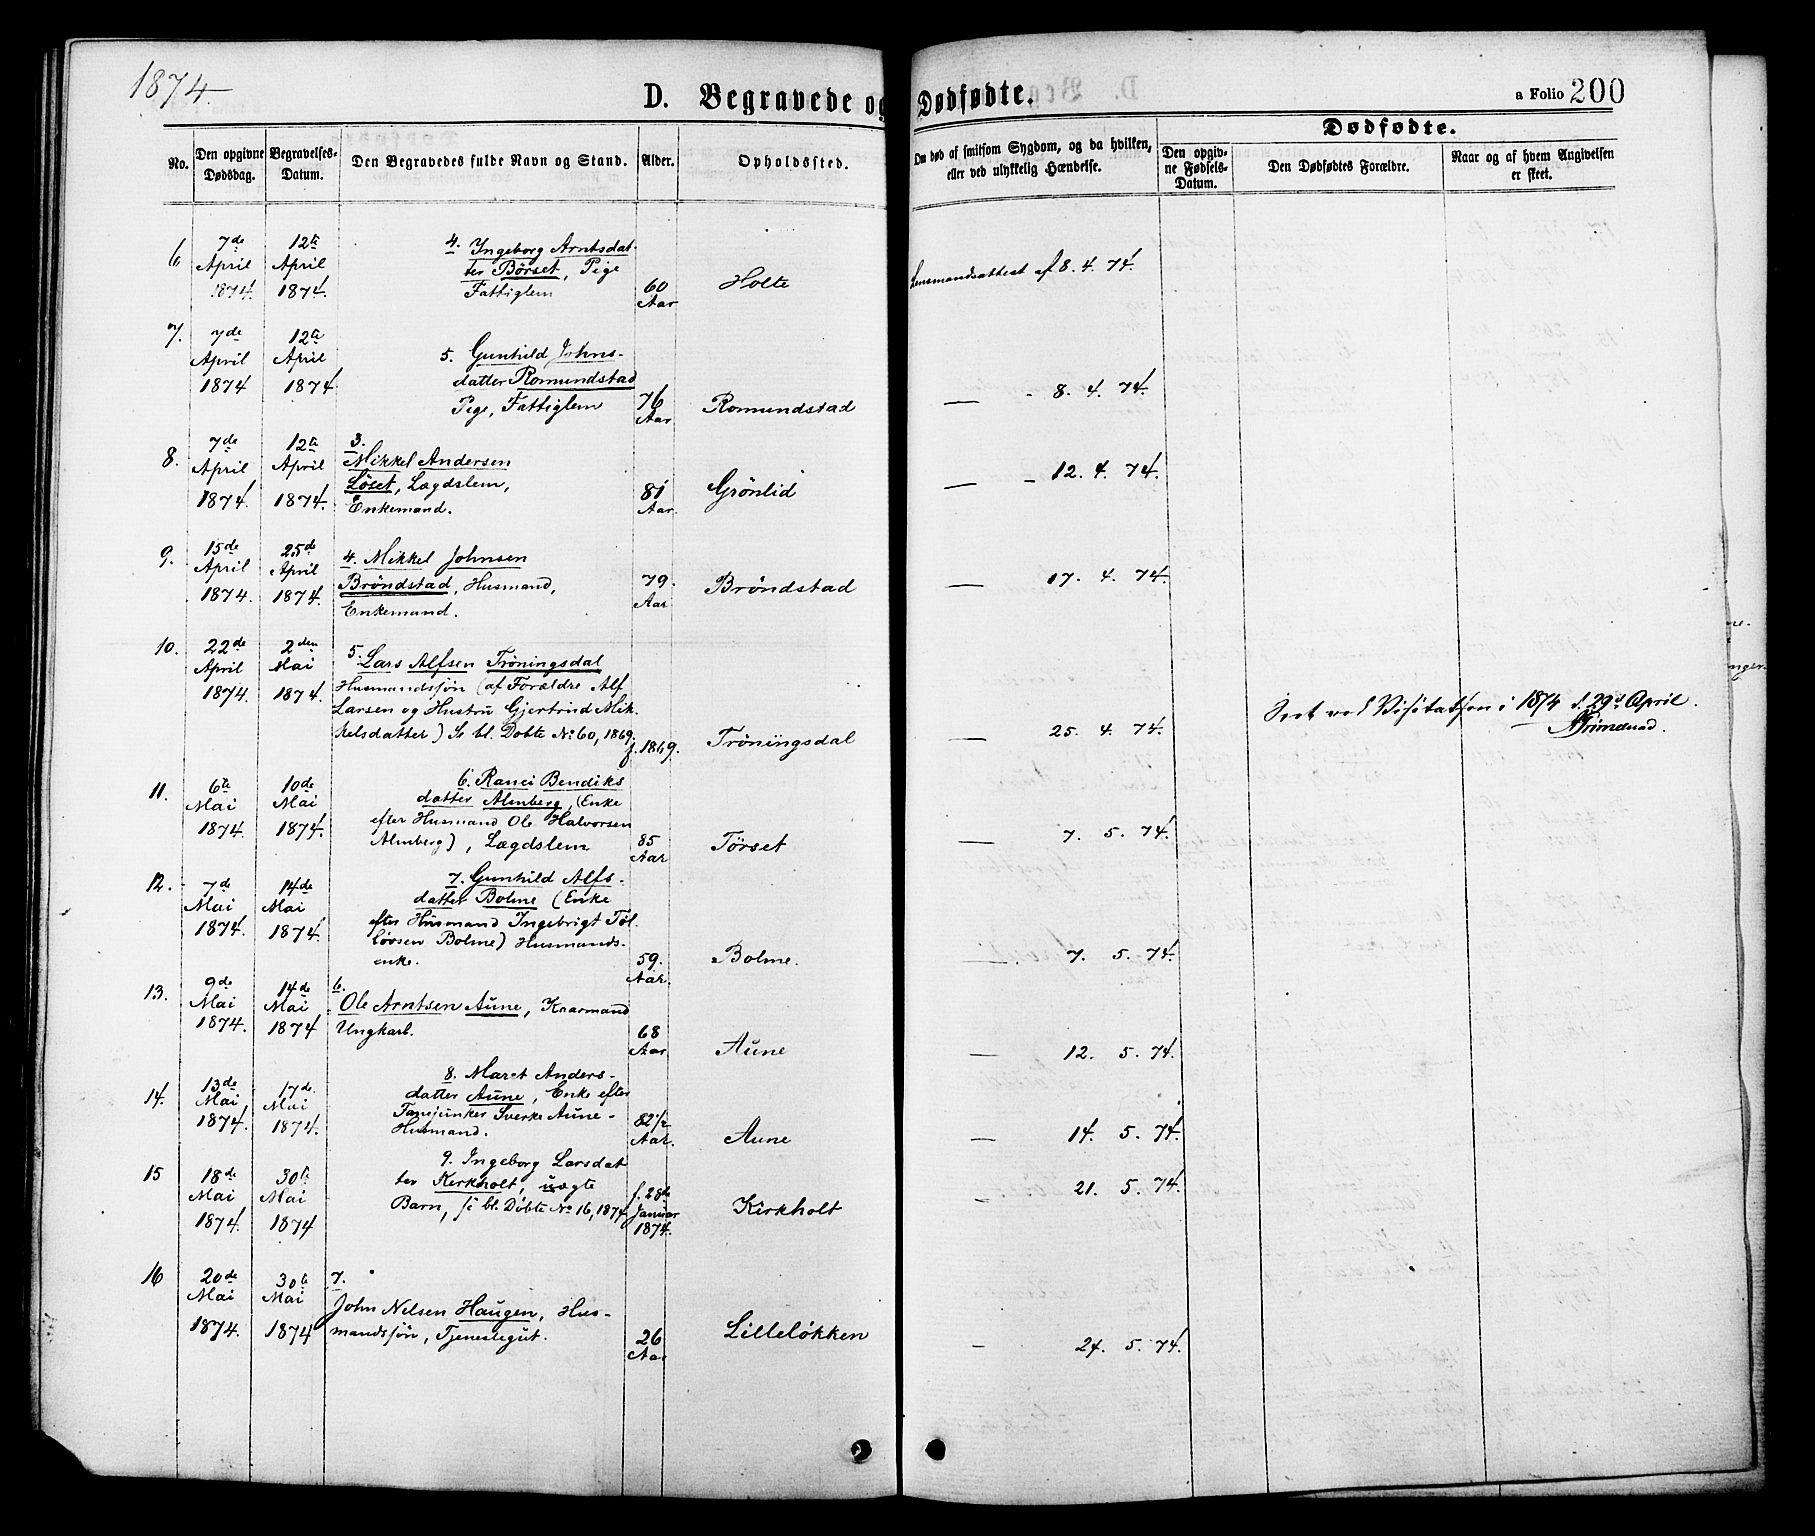 1874.
D. Begravede og Dødfødte.
a Folio 200
No.
Den opgivne Dødsdag.
Begravelses-Datum.
Den Begravedes fulde Navn og Stand.
Alder.
Opholdssted.
Om død af smitsom Sygdom, og da hvilken, eller ved ulykkelig Hændelse.
Dødfødte.
Den opgivne Fødsels-Datum.
Den Dødfødtes Forældre.
Naar og af hvem Angivelsen er skeet.
6 7de April 1874. 12te April 1874.
4. Ingeborg Arntsdat-
ter Börset, Pige
Fattiglem
60 Aar
Holte
Lensmandsattest af 8. 4. 74.
7. 7de April 1874 12te April 1874.
5. Gunhild Johns-
datter Romundstad
Pige, Fattiglem
76 Aar
Romundstad
— - 8. 4. 74.
8. 7de April 1874. 12te April 1874.
3.
Mikkel Andersen
Löset, Lægdslem,
Enkemand.
81 Aar.
Grönlid
— - 12. 4. 74.
9. 15de April 1874. 25de April 1874.
4. Mikkel Johnsen
Bröndstad, Husmand,
Enkemand.
79. Aar
Bröndstad
— 17. 4. 74.
10. 22de April 1874. 2den Mai 1874.
5. Lars Alfsen Tröningsdal
Husmandssön (af Forældre Alf
Larsen og Hustru Gjertrud Mik-
kelsdatter) Se bl. Döbte No 60, 1869.
f. 1869.
Tröningsdal
— 25. 4. 74.
Seet ved Visitatsen i 1874 d. 29d April.
11. 6te Mai 1874. 10de Mai 1874.
6. Ranei Bendiks
datter Almberg, (Enke
efter Husmand Ole Halvorsen
Almberg), Lægdslem
85 Aar
Törset
— 7. 5. 74.
12. 7de Mai 1874. 14de Mai 1874.
7. Gunhild Alfs-
datter Bolme (Enke
efter Husmand Ingebrigt Töl
lövsen Bolme) Husmands-
enke.
59. Aar.
Bolme.
— 7. 5. 74.
13. 9de Mai 1874. 14de Mai 1874
6.
Ole Arntsen Aune, Kaarmand
Ungkarl.
68 Aar
Aune
— 12. 5. 74.
14. 13de Mai 1874. 17de Mai 1874.
8. Maret Anders-
datter Aune, Enke efter
Fanejunker Sverke Aune -
Husmand.
82½ Aar.
Aune
— 14. 5. 74.
15 18de Mai 1874. 30te Mai 1874
9. Ingeborg Larsdat
ter Kirkholt, uægte
Barn, se bl. Döbte No 16, 1874.
f. 28de Januar 1874.
Kirkholt
— 21. 5. 74.
16 20de Mai 1874. 30te Mai 1874
7.
John Nelsen Haugen, Hus-
mandssön, Tjenestegut.
26 Aar
Lillelökken
- 24. 5. 74.